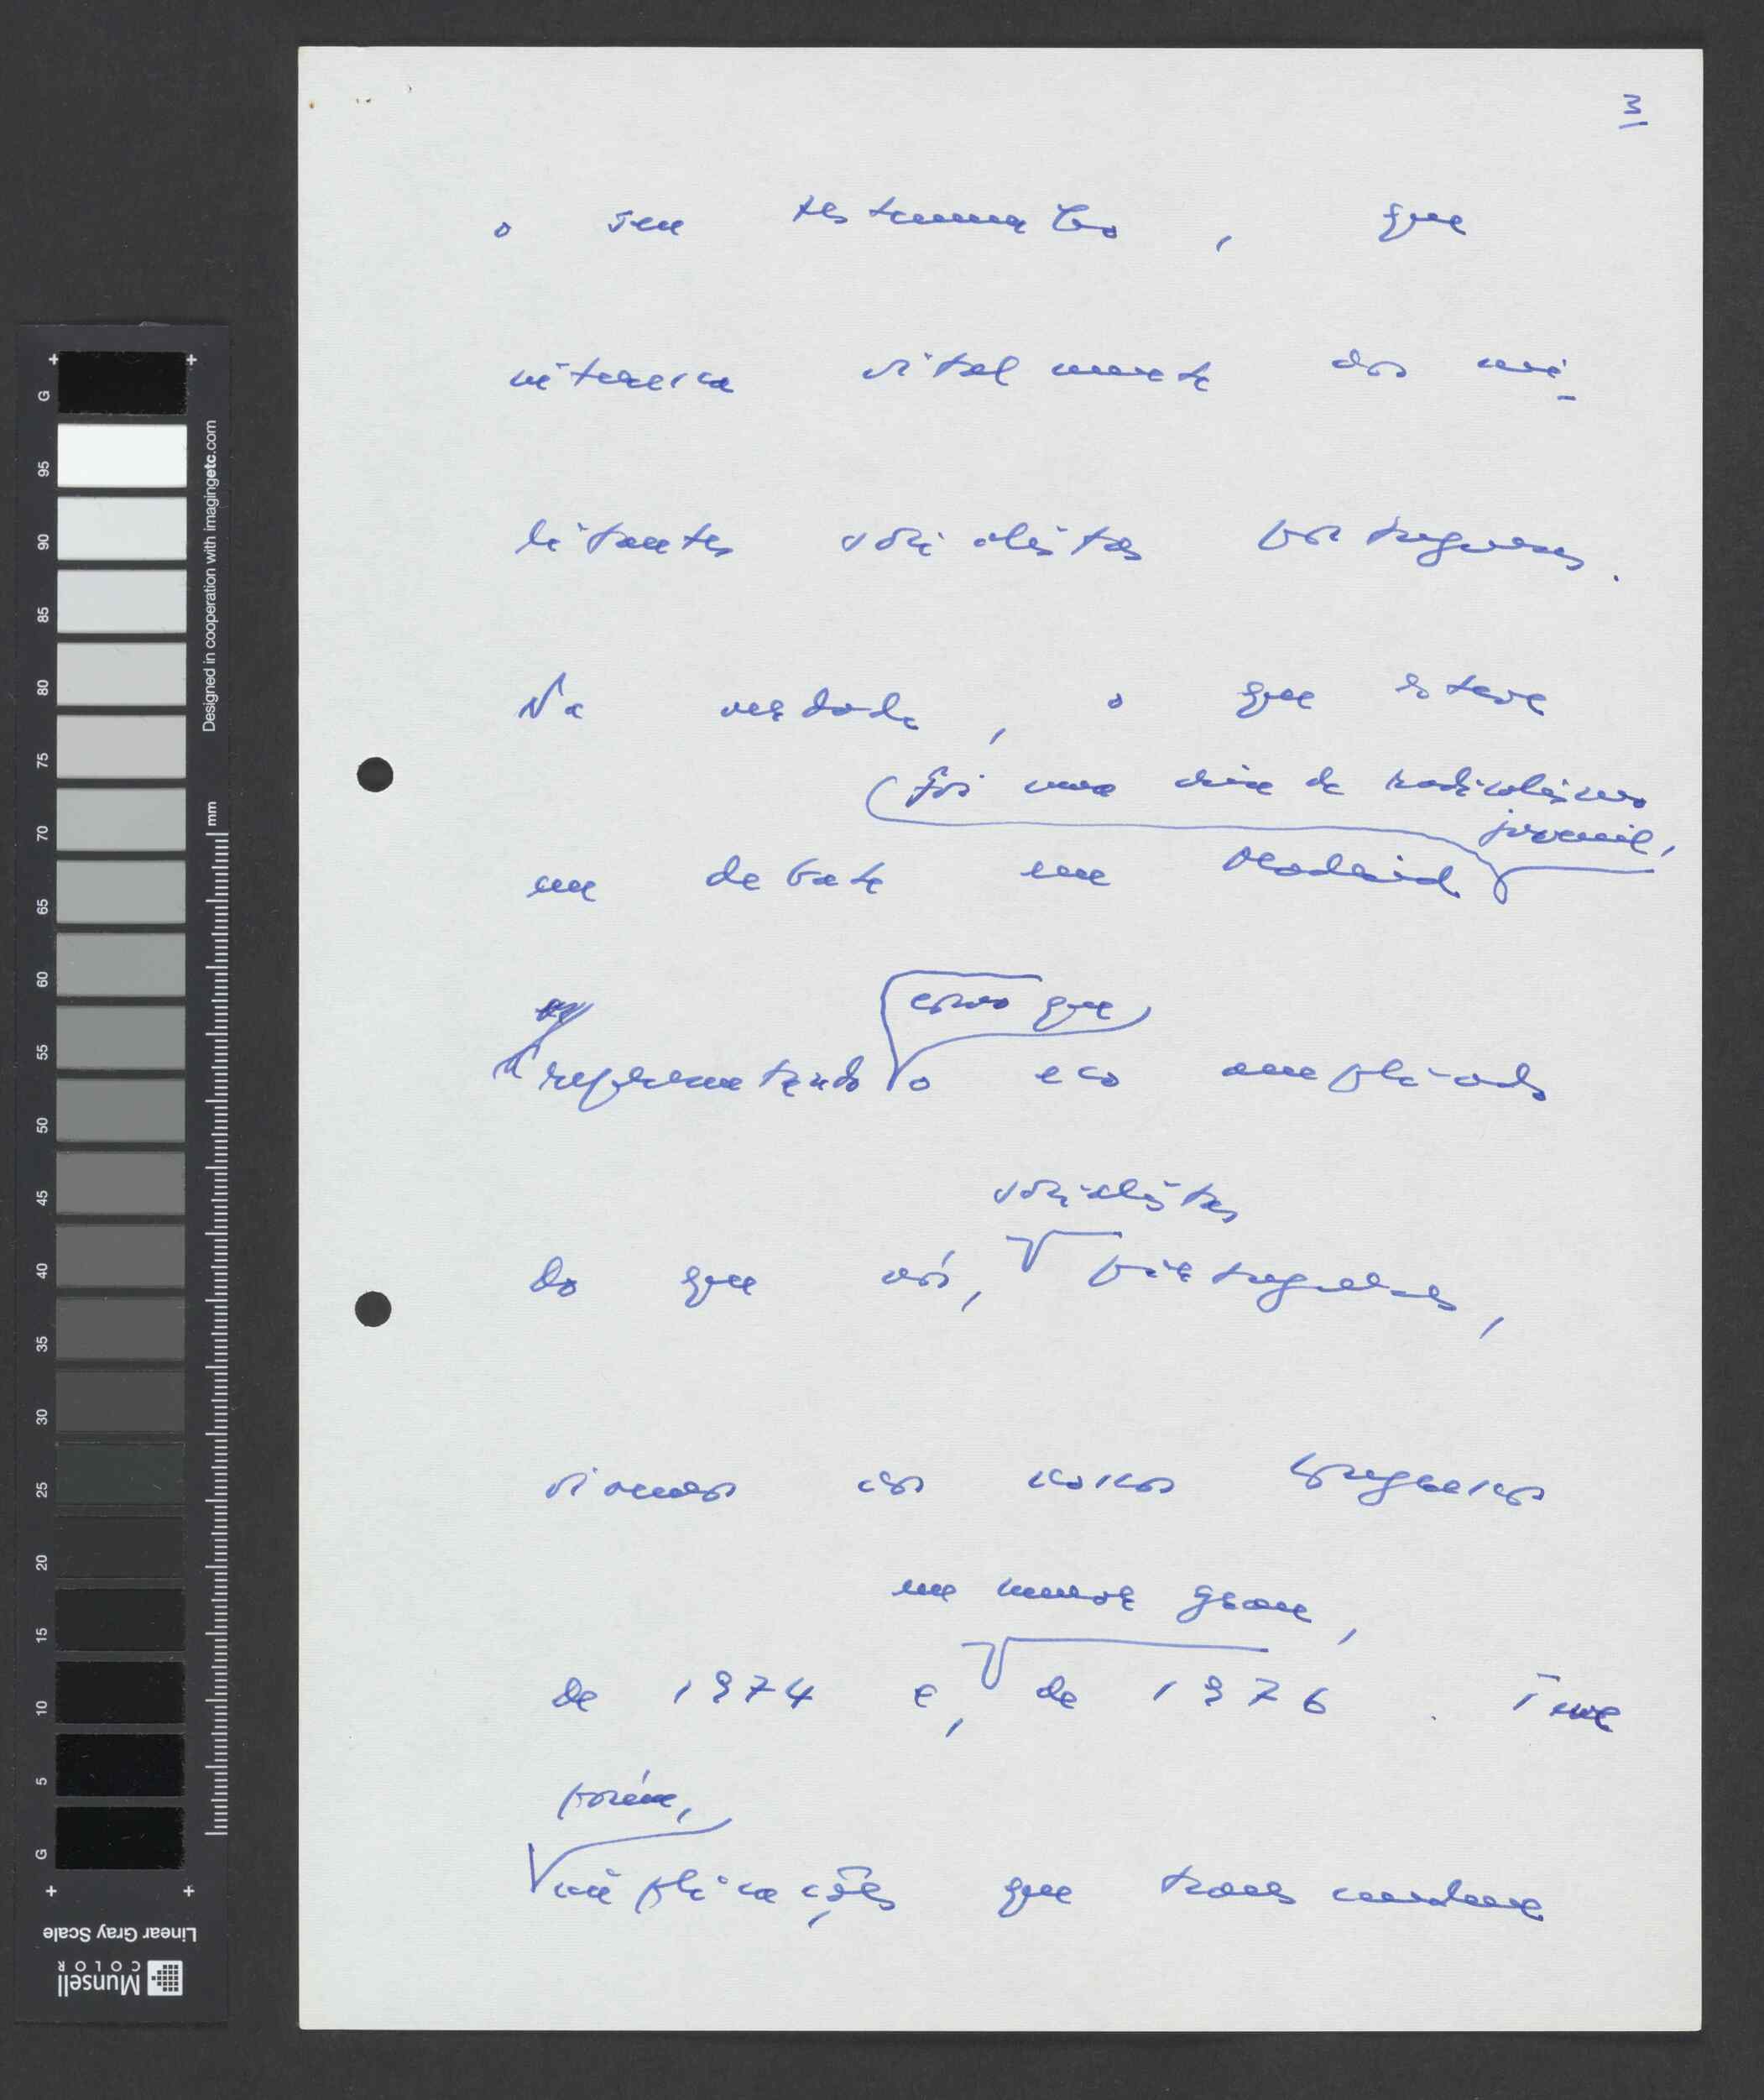 3
o seu testemunho, que
interessa vitalmente aos mi-
litantes socialistas portugueses.
Na verdade, o que esteve
foi uma crise de radicalismo
juvenil,
em debate em Madrid
como que
representando o eco ampliado
socialistas
do que nós, portugueses,
vivemos nos nossos Congressos
em menor grau,
de 1974 e, de 1976. Teve
porém,
implicações que transcendem
G
95
90
85
80
75
70
65
60
55
50
45
40
35
30
25
20
15
10
5
G
Designed in cooperation with imagingetc.com
mm
Linear Gray Scale
Munsell
COLOR